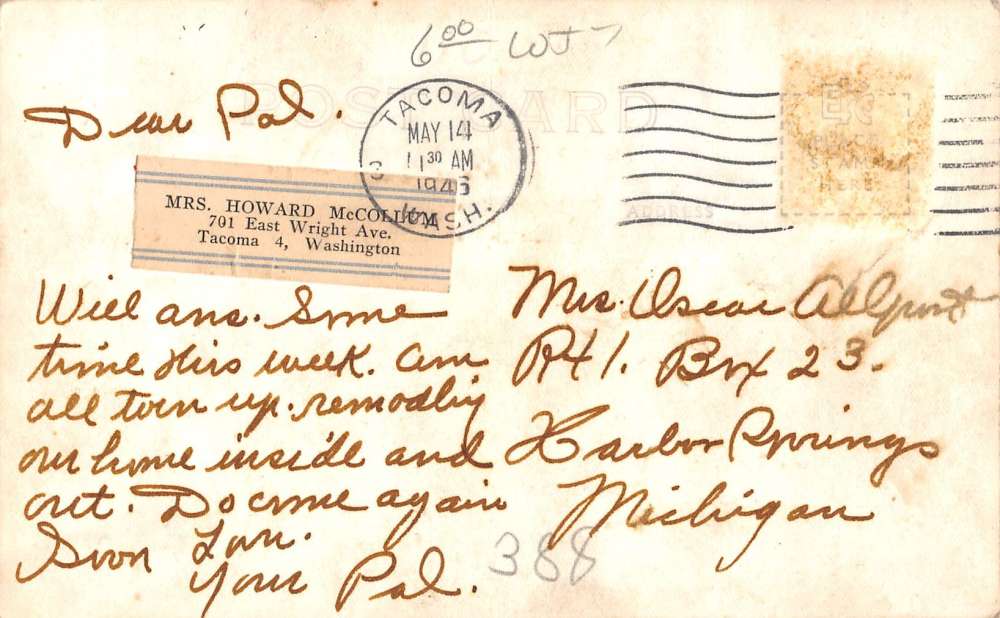 6⁰⁰ WJ
POST CARD
TACOMA
MAY 14
11 30 AM
1946
WASH.
PLACE
STAMP
HERE
ADDRESS
Dear Pal.
MRS. HOWARD McCOLLUM
701 East Wright Ave.
Tacoma 4, Washington
Will ans. Some
time this week. am
all torn up. remodling
our home inside and
out. Do come again
Soon
Your Pal.
Mrs. Oscar
Rt 1. Box 23.
Harbor Springs
Michigan
388